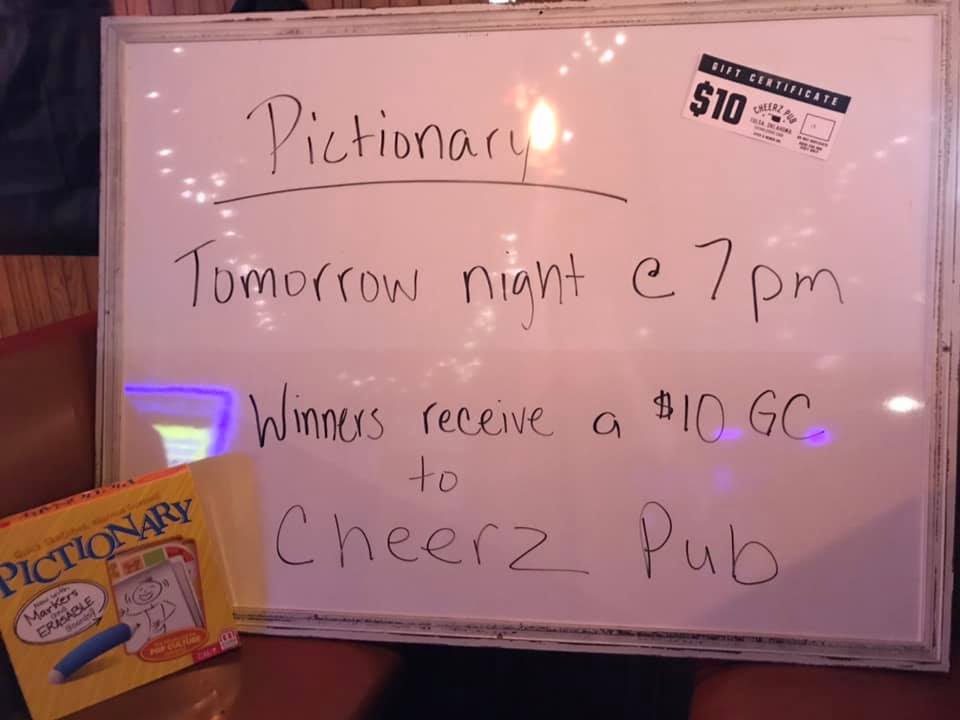 GIFT CERTIFICATE
$10 CHEERZ PUB
TULSA, OKLAHOMA
Pictionary
Tomorrow night @ 7pm
Winners receive a $10 GC
to
Cheerz Pub
PICTIONARY
Now with
Markers
and
ERASABLE
Boards!
POP CULTURE